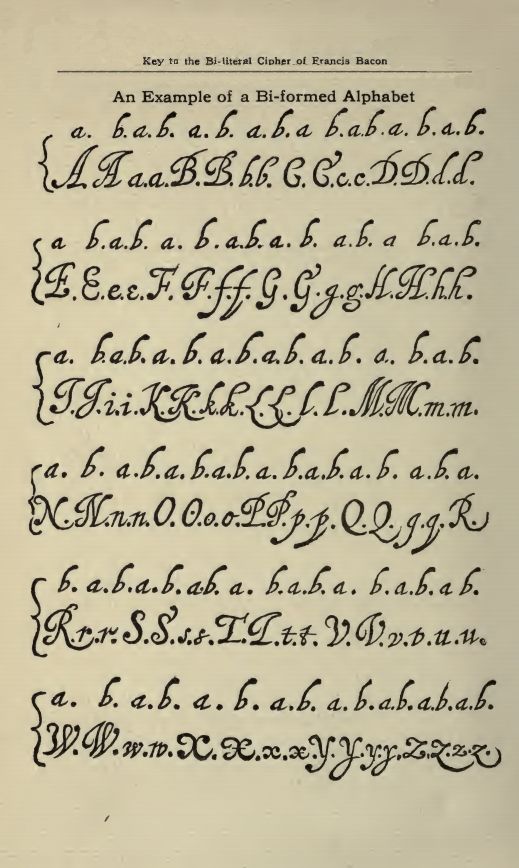 Key to the Bi-literal Cipher of Francis Bacon
An Example of a Bi-formed Alphabet
a. b.a.b. a. b. a.b.a b.a.b.a. b.a.b.
A. A a.a.B.B.b.b. C. C.c.c.D.D.d.d.
a b.a.b. a. b.a.b.a. b. a.b. a b.a.b.
E.E.e.e.F. F.f.f. G.G.g.g.H.H.h.h.
a. b.a.b.a. b. a.b.a.b. a.b. a. b.a.b.
I.I.i.i.K.K.k.k.L.L.l.l.M.M.m.m.
a. b. a.b.a. b.a.b. a. b.a.b.a. b. a.b.a.
N.N.n.n.O.O.o.o.P.P.p.p.Q.Q.q.q.R.
b. a.b.a.b.ab a. b.a.b.a. b.a.b.a b.
R.r.r.S.S.s.s.T.T.t.t. V.V.v.v.u.u.
a. b. a.b. a. b. a.b. a.b.a.b.a.b.a.b.
W.W.w.w.X.X.x.x.Y.Y.y.y.Z.Z.z.z.